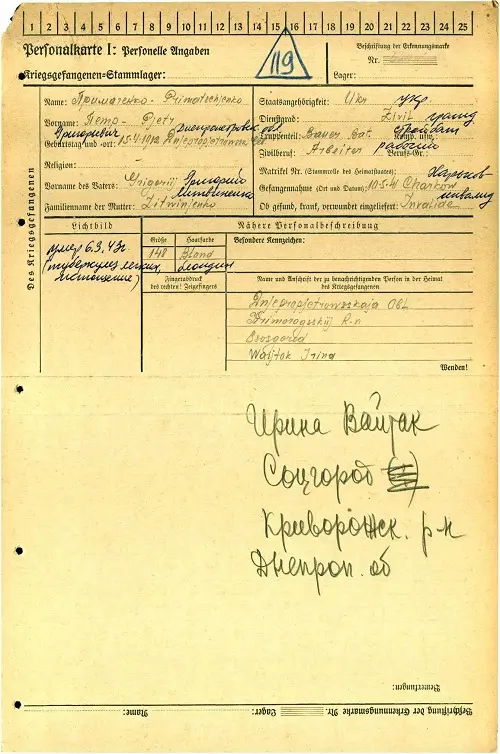 1 2 3 4 5 6 7 8 9 10 11 12 13 14 15 16 17 18 19 20 21 22 23 24 25
Personalkarte I: Personelle Angaben
Kriegsgefangenen-Stammlager:
119
Beschriftung der Erkennungsmarke
Nr.
Lager:
Des Kriegsgefangenen
Name: Примаченко - Primatschjenko
Vorname: Петр - Pjetr
Григорьевич Днепропетровск. обл
Geburtstag und -ort: 15.4.1912
Religion: —
Vorname des Vaters: Grigorij Григорий
Familienname der Mutter: Litwinjenko Литвиненко
Staatsangehörigkeit: Ukr укр.
Dienstgrad: Zivil гражд
Truppenteil: Bauer Bat. стройбат
Komp. usw.:
Zivilberuf: Arbeiter рабочий
Berufs-Gr.:
Matrikel Nr. (Stammrolle des Heimatstaates): Харьков
Gefangennahme (Ort und Datum): Charkow
Ob gesund, krank, verwundet eingeliefert: Invalide инвалид
Lichtbild
Nähere Personalbeschreibung
умер 6.3.43г.
(туберкулез легких,
истощение)
Größe
148
Haarfarbe
Blond
блондин
Besondere Kennzeichen:
Fingerabdruck
des rechten! Zeigefingers
Name und Anschrift der zu benachrichtigenden Person in der Heimat
des Kriegsgefangenen
Dnjepropjetrowskaja Obl.
Krimorogskij R-n
Sozgorod
Wajtok Irina
Wenden!
Ирина Вайтак
Соцгород
Криворожск. р-н
Днепроп. об
Bemerkungen:
Beschriftung der Erkennungsmarke Nr. Lager: Name: